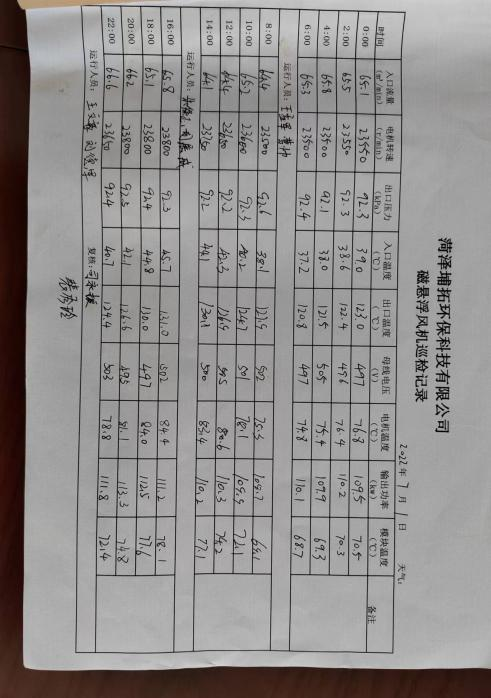 菏泽埔拓环保科技有限公司
磁悬浮风机巡检记录
2022年 7月 1日 天气:
时间 入口流量(m³/min) 电机转速(r/min) 出口压力(kPa) 入口温度(℃) 出口温度(℃) 母线电压(V) 电机温度(℃) 输出功率(kw) 模块温度(℃) 备注
0:00 65.1 23550 92.3 39.0 123.0 497 76.8 109.5 70.5
2:00 65.5 23550 92.3 38.6 122.4 496 76.4 110.2 70.3
4:00 65.8 23500 92.1 38.0 121.5 505 75.4 109.9 69.3
6:00 65.3 23500 92.4 37.2 120.8 497 74.8 110.1 68.7
运行人员:
8:00 64.4 23500 92.6 38.1 121.9 502 75.5 109.7 69.1
10:00 65.2 23600 92.3 40.2 124.7 501 78.1 109.9 72.1
12:00 64.4 23650 92.2 42.3 126.9 505 80.6 110.3 74.2
14:00 64.1 23750 92.2 44.1 130.1 500 83.4 110.2 77.1
运行人员:
16:00 65.8 23800 92.3 45.7 131.0 502 84.4 111.2 78.1
18:00 65.1 23800 92.4 44.8 130.0 497 84.0 112.5 77.6
20:00 66.2 23800 92.5 42.1 126.6 495 81.1 113.3 74.8
22:00 66.6 23650 92.4 40.1 124.4 503 78.8 111.8 72.4
运行人员: 复核: